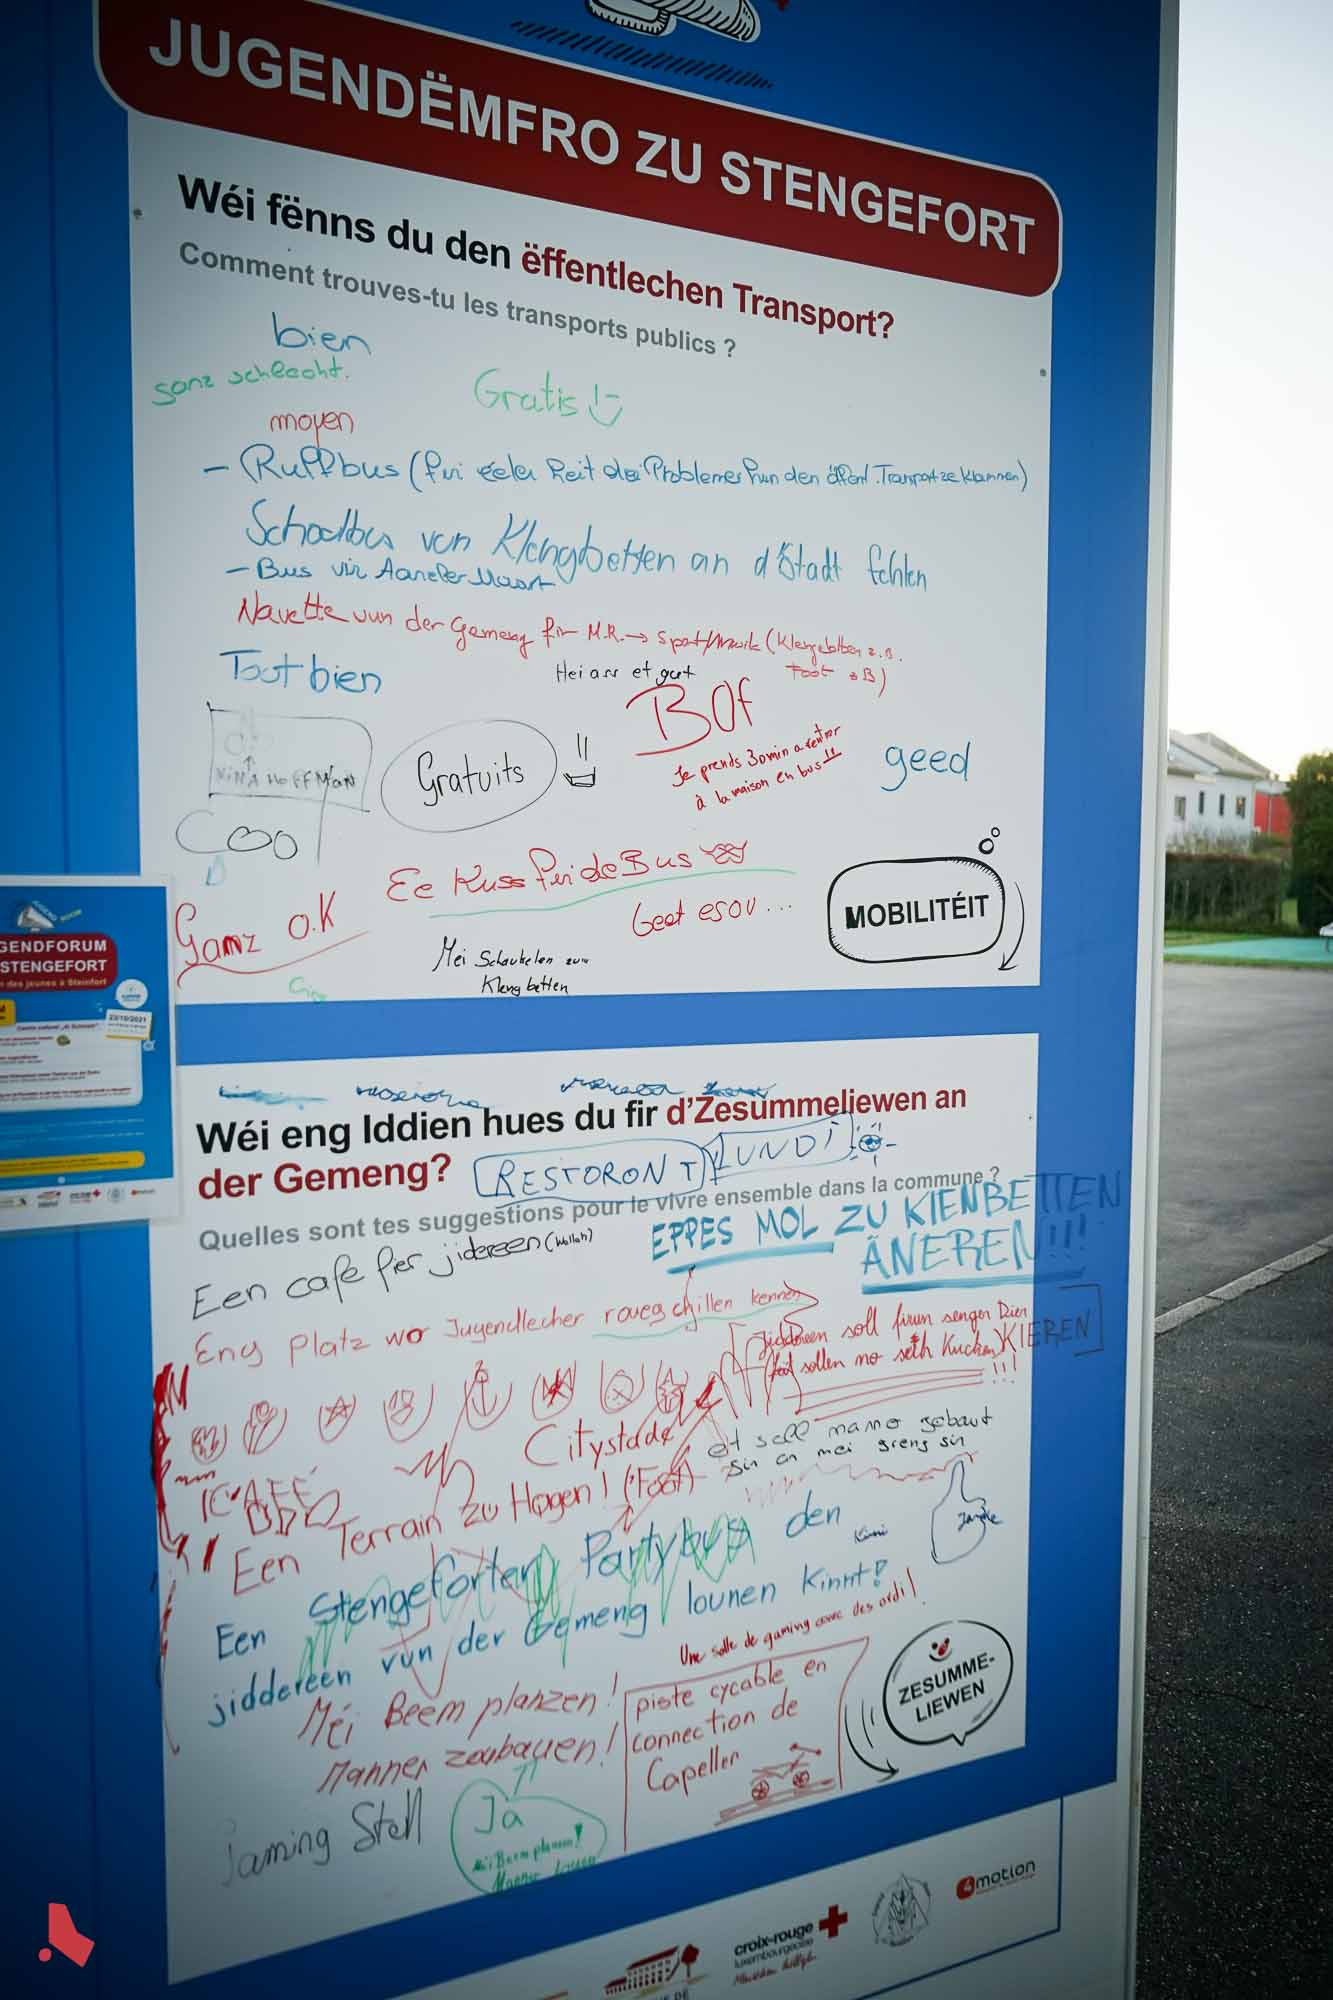 JUGENDËMFRO ZU STENGEFORT
Wéi fënns du den ëffentlechen Transport?
Comment trouves-tu les transports publics ?
bien
ganz schlecht.
Gratis!
moyen
- Ruffbus (
Problemer hun den
Transport ze klammen)
Schoolbus van Klengbetten an d'Stadt fehlen
- Bus vir
Navette vun der Gemeng fir M.R. → Sport/Musik (Klengbetten z.B.
Foot z.B)
Tout bien
Hei ass et gut
BOf
Je prends 30min a rentrer
à la maison en bus!!
NINA HOFFMAN
Gratuits
geed
Coo
Ee Kuss fir de Bus
Geet esou...
MOBILITÉIT
Ganz o.K
Mei Schaukelen zu
Klengbetten
GENDFORUM
STENGEFORT
n des jeunes à Steinfort
23/10/2021
Wéi eng Iddien hues du fir d'Zesummeliewen an
der Gemeng?
RESTORONT
LUNDI
Quelles sont tes suggestions pour le vivre ensemble dans la commune ?
EPPES MOL ZU KLENBETTEN
ÄNEREN!!!
Een cafe fier jidereen (Wallah)
Eng Platz wo Jugendlecher roueg chillen kennen
Jiddereen soll firun senger Dier
sollen no
KIEREN
!!!
Citystade
et soll manno gebaut
sin an mei greng sin
Een Terrain zu Hagen! (Foot)
Een Stengeforter Partybus den
Kimi
jiddereen vun der Gemeng lounen kinnt!
Une salle de gaming avec des ordi!
Méi Beem planzen!
Manner zoubauen!
piste cycable en
connection de
Capellen
ZESUMME-
LIEWEN
jaming Stell
Ja
Méi Beem planzen!
Manner
croix-rouge
luxembourgeoise
Mënschen hëllefen
4motion